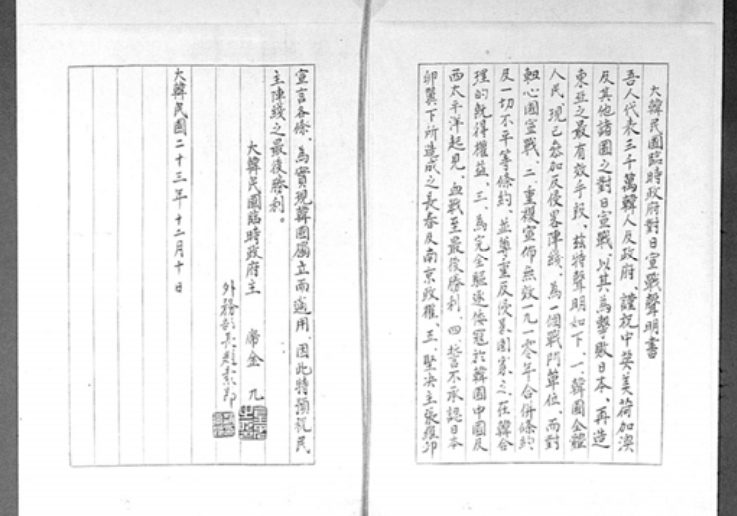 大韓民國臨時政府對日宣戰聲明書
吾人代表三千萬韓人及政府、謹祝中英美荷加澳
及其他諸國之對日宣戰、以其為擊敗日本、再造
東亞之最有效手段、茲特聲明如下、一、韓國全體
人民、現已參加反侵略陣線、為一個戰鬥單位、而對
軸心國宣戰、二、重複宣佈無效一九一零年合併條約
及一切不平等條約、並尊重反侵畧國家之在韓合
理的旣得權益、三、為完全驅逐倭寇於韓國中國及
西太平洋起見、血戰至最後勝利、四、誓不承認日本
卵翼下所造成之長春及南京政權、三、堅決主張羅邱
宣言各條、為實現韓國獨立而適用、因此特預祝民
主陣綫之最後勝利。
大韓民國臨時政府主 席金 九
外務部長趙素昂
大韓民國二十三年十二月十日